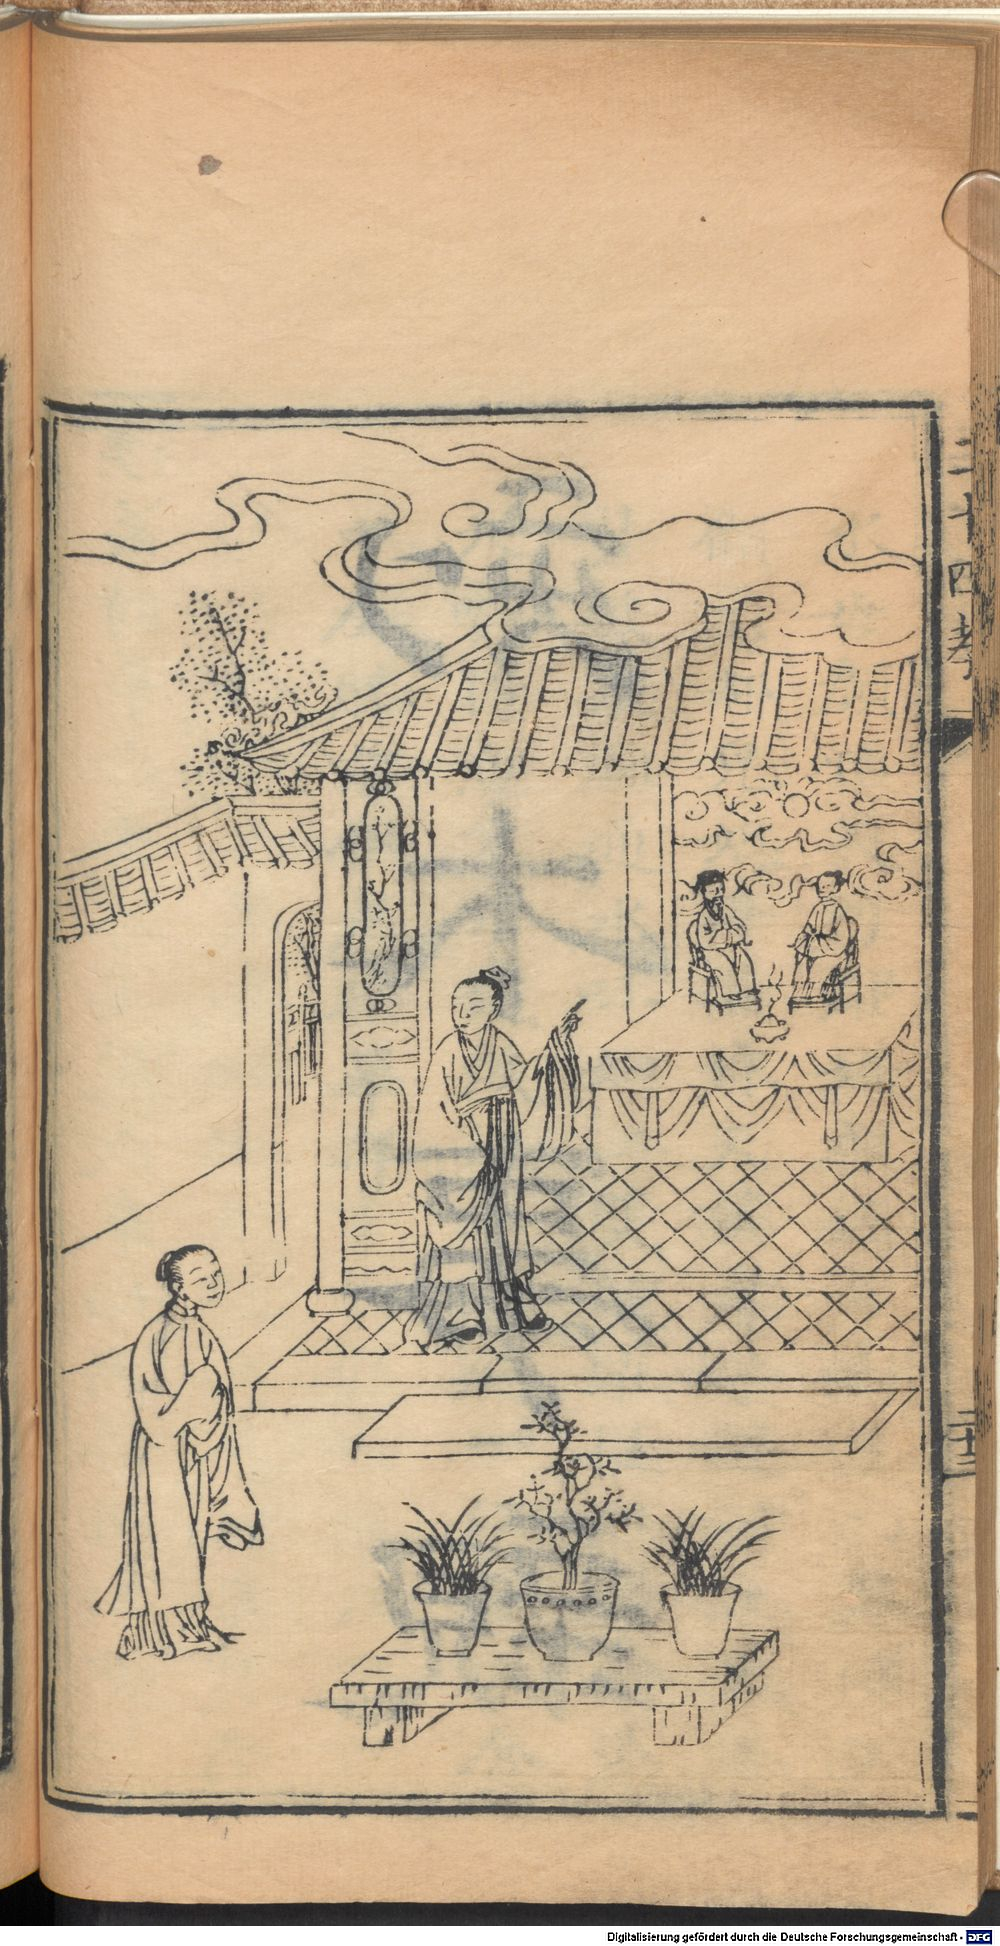 二十四孝
Digitalisierung gefördert durch die Deutsche Forschungsgemeinschaft - DFG